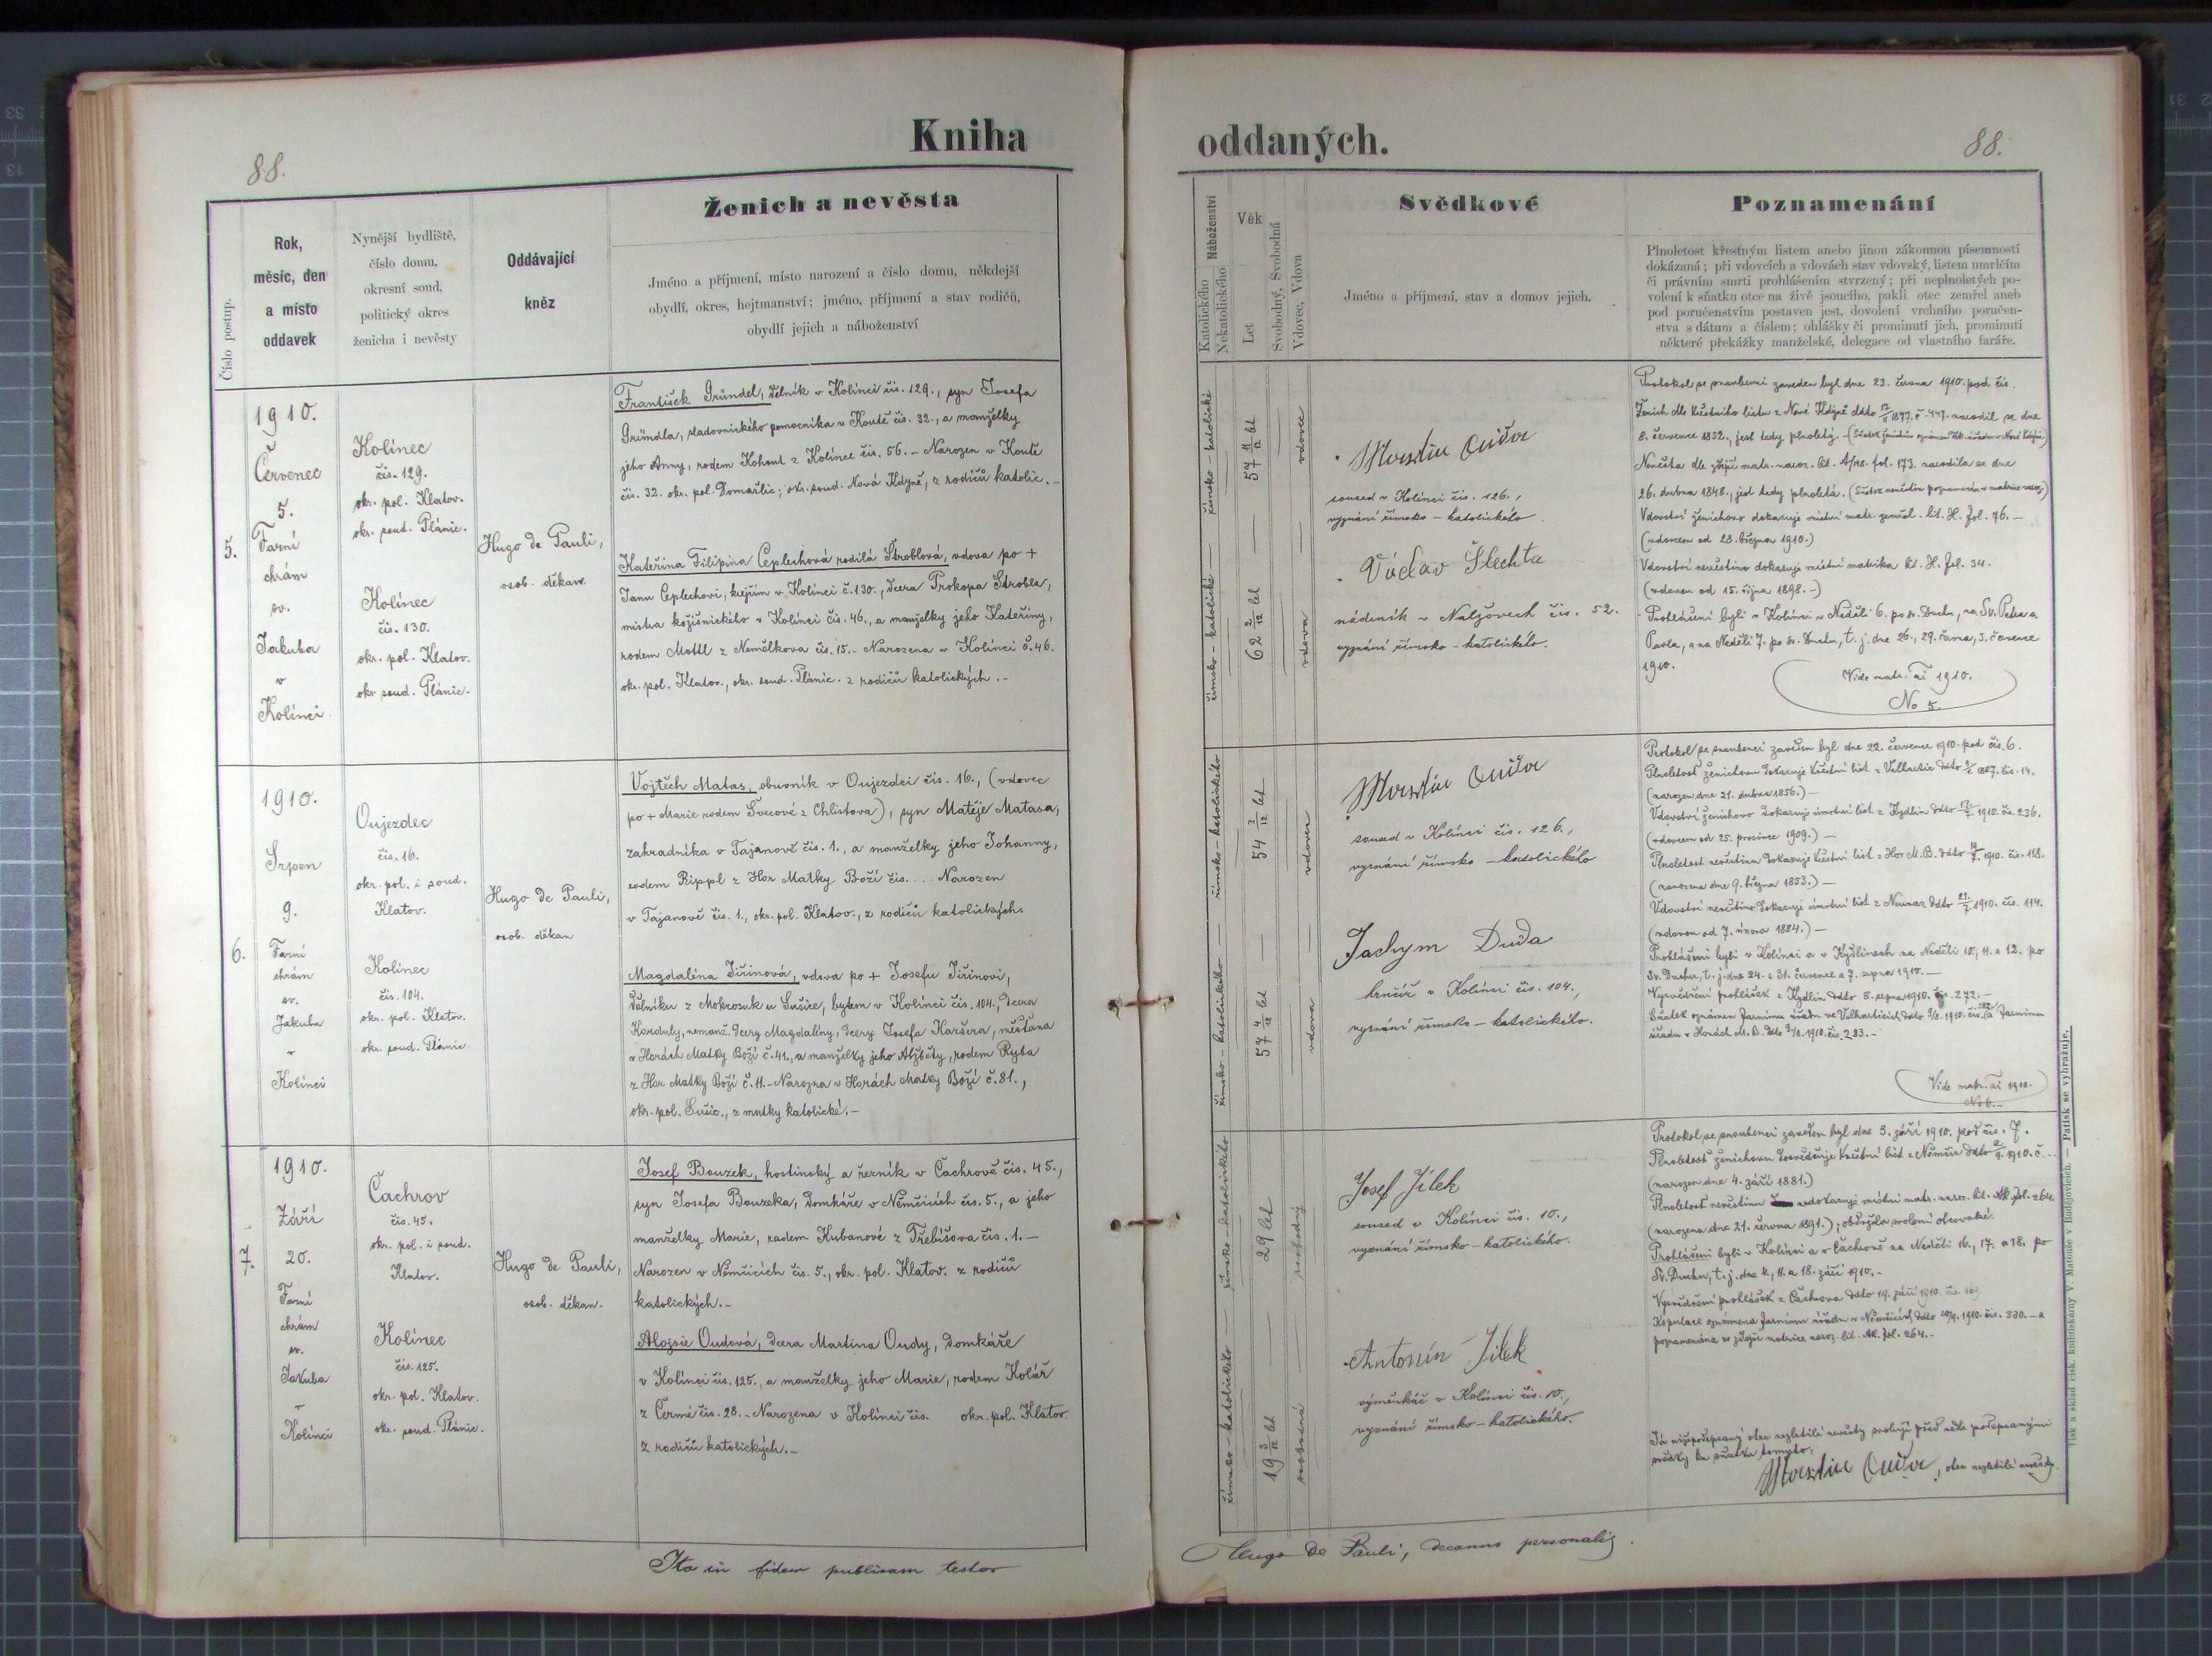 Kniha
oddaných.
88.
88.
Číslo postup.
Rok,
měsíc, den
a místo
oddavek
Nynější bydliště,
číslo domu,
okresní soud,
politický okres
ženicha i nevěsty
Oddávající
kněz
Ženich a nevěsta
Jméno a příjmení, místo narození a číslo domu, někdejší
obydlí, okres, hejtmanství; jméno, příjmení a stav rodičů,
obydlí jejich a náboženství
Náboženství
Katolického
Nekatolického
Věk
Let
Svobodný, Svobodná
Vdovec, Vdova
Svědkové
Jméno a příjmení, stav a domov jejich.
Poznamenání
Plnoletost křestným listem anebo jinou zákonnou písemností
dokázaná; při vdovcích a vdovách stav vdovský, listem umrlčím
či právním smrti prohlášením stvrzený; při neplnoletých po-
volení k sňatku otce na živě jsoucího, pakli otec zemřel aneb
pod poručenstvím postaven jest, dovolení vrchního poručen-
stva s dátum a číslem; ohlášky či prominutí jich, prominutí
některé překážky manželské, delegace od vlastního faráře.
5.
1910.
Červenec
5.
Farní
chrám
sv.
Jakuba
v
Kolínci
Kolínec
čis. 129.
okr. pol. Klatov.
okr. soud. Plánic.
Kolínec
čis. 130.
okr. pol. Klatov.
okr. soud. Plánic.
Hugo de Pauli,
osob. děkan.
František Gründel, dělník v Kolínci čis. 129., syn Josefa
Gründla, sladovnického pomocníka v Koutě čis. 32., a manželky
jeho Anny, rodem Kohout z Kolínce čis. 56. – Narozen v Koutě
čis. 32. okr. pol. Domažlic; okr. soud. Nová Kdyně, z rodičů katolic. –
Kateřina Filipina Ceplechová rodilá Stroblová, vdova po +
Janu Ceplechovi, krejčím v Kolínci č. 130., dcera Prokopa Strobla,
mistra kožišnického v Kolínci čis. 46., a manželky jeho Kateřiny,
rodem Mottl z Nemělkova čis. 15. – Narozena v Kolínci č. 46.
okr. pol. Klatov., okr. soud. Plánic. z rodičů katolických. –
římsko – katolické
římsko – katolické
57 11/12 let
62 2/12 let
vdovec
vdova
Martin Ouda
soused v Kolínci čis. 126.,
vyznání římsko – katolického.
Václav Šlechta
nádeník v Nalžovech čis. 52.
vyznání římsko – katolického.
Protokol se snoubenci zaveden byl dne 23. června 1910. pod čis.
8. července 1852., jest tedy plnoletý. –
Nevěsta dle zdejší matr. naroz. fol. 173. narodila se dne
26. dubna 1848., jest tedy plnoletá.
Vdovství ženichovo dokazuje místní matr. zemřel. lit. H. fol. 76. –
(vdovcem od 28. března 1910.)
Vdovství nevěstino dokazuje místní matrika lit. H. fol. 34.
(vdovou od 15. října 1898. –)
Prohlášeni byli v Kolínci v Neděli 6. po sv. Duchu, na Sv. Petra a
Pavla, a na Neděli 7. po sv. Duchu, t. j. dne 26., 29. června, 3. července
1910.
Vide matr. ai 1910.
No 5.
6.
1910.
Srpen
9.
Farní
chrám
sv.
Jakuba
v
Kolínci
Oujezdec
čis. 16.
okr. pol. i soud.
Klatov.
Kolínec
čis. 104.
okr. pol. Klatov.
okr. soud. Plánic.
Hugo de Pauli,
osob. děkan
Vojtěch Matas, obuvník v Oujezdci čis. 16., (vdovec
po + Marie rodem Švecové z Chlistova), syn Matěje Matasa,
zahradníka v Tajanově čis. 1., a manželky jeho Johanny,
rodem Rippl z Hor Matky Boží čis. ... Narozen
v Tajanově čis. 1., okr. pol. Klatov., z rodičů katolických.
Magdalina Jiřinová, vdova po + Josefu Jiřinovi,
dělníku z Mokrosuk u Sušice, bytem v Kolínci čis. 104., dcera
nemanž. dcery Magdaliny, dcery Josefa měšťana
v Horách Matky Boží č. 41., a manželky jeho Alžběty, rodem Ryba
z Hor Matky Boží č. 11. – Narozena v Horách Matky Boží č. 81.,
okr. pol. Sušic., z matky katolické. –
římsko – katolického
římsko – katolického
54 3/12 let
57 4/12 let
vdovec
vdova
Martin Ouda
soused v Kolínci čis. 126.,
vyznání římsko – katolického
Jachym Duda
hrnčíř v Kolínci čis. 104.,
vyznání římsko – katolického.
Protokol se snoubenci zaveden byl dne 22. července 1910. pod čis. 6.
(narozen dne 21. dubna 1856.) –
(vdovcem od 25. prosince 1909.) –
(narozena dne 9. března 1853.) –
(vdovou od 7. února 1884.) –
Prohlášeni byli v Kolínci a v Kydlinech na Neděli 10., 11. a 12. po
Sv. Duchu, t. j. dne 24. a 31. července a 7. srpna 1910. –
Vysvědčení prohlášek z Kydlin ddto 8. srpna 1910. čis. 272. –
Vide matr. ai 1910.
No 6. –
7.
1910.
Září
20.
Farní
chrám
sv.
Jakuba
v
Kolínci
Čachrov
čis. 45.
okr. pol. i soud.
Klatov.
Kolínec
čis. 125.
okr. pol. Klatov.
okr. soud. Plánic.
Hugo de Pauli,
osob. děkan.
Josef Bouzek, hostinský a řezník v Čachrově čis. 45.,
syn Josefa Bouzeka, domkáře v Němčicích čis. 5., a jeho
manželky Marie, rodem Kubanové z Třebíšova čis. 1. –
Narozen v Němčicích čis. 5., okr. pol. Klatov. z rodičů
katolických. –
Alojsie Oudová, dcera Martina Oudy, domkáře
v Kolínci čis. 125., a manželky jeho Marie, rodem Kolář
z Černé čis. 28. – Narozena v Kolínci čis. okr. pol. Klatov.
z rodičů katolických. –
římsko – katolického
římsko – katolického
29 let
19 3/12 let
svobodný
svobodná
Josef Jílek
soused v Kolínci čis. 10.,
vyznání římsko – katolického.
Antonín Jílek
výměnkář v Kolínci čis. 10.,
vyznání římsko – katolického.
Protokol se snoubenci zaveden byl dne 3. září 1910. pod čis. 7.
(narozen dne 4. září 1881.)
(narozena dne 21. června 1891.); obdržela svolení otcovské.
Prohlášeni byli v Kolínci a v Čachrově na Neděli 16., 17. a 18. po
Sv. Duchu, t. j. dne 4., 11. a 18. září 1910. –
Vysvědčení prohlášek z Čachrova ddto 19. září 1910.
poznamenána ve zdejší matrice naroz. fol. 264. –
Já nížepodepsaný otec nezletilé nevěsty svoluji před níže podepsanými
svědky ku sňatku tomuto:
Martin Ouda, otec nezletilé nevěsty.
Ita in fidem publicam testor
Hugo de Pauli, decanus personalis.
Tisk a sklad čísk. knihtiskárny V. Matouše v Budějovicích. — Patisk se vyhražuje.